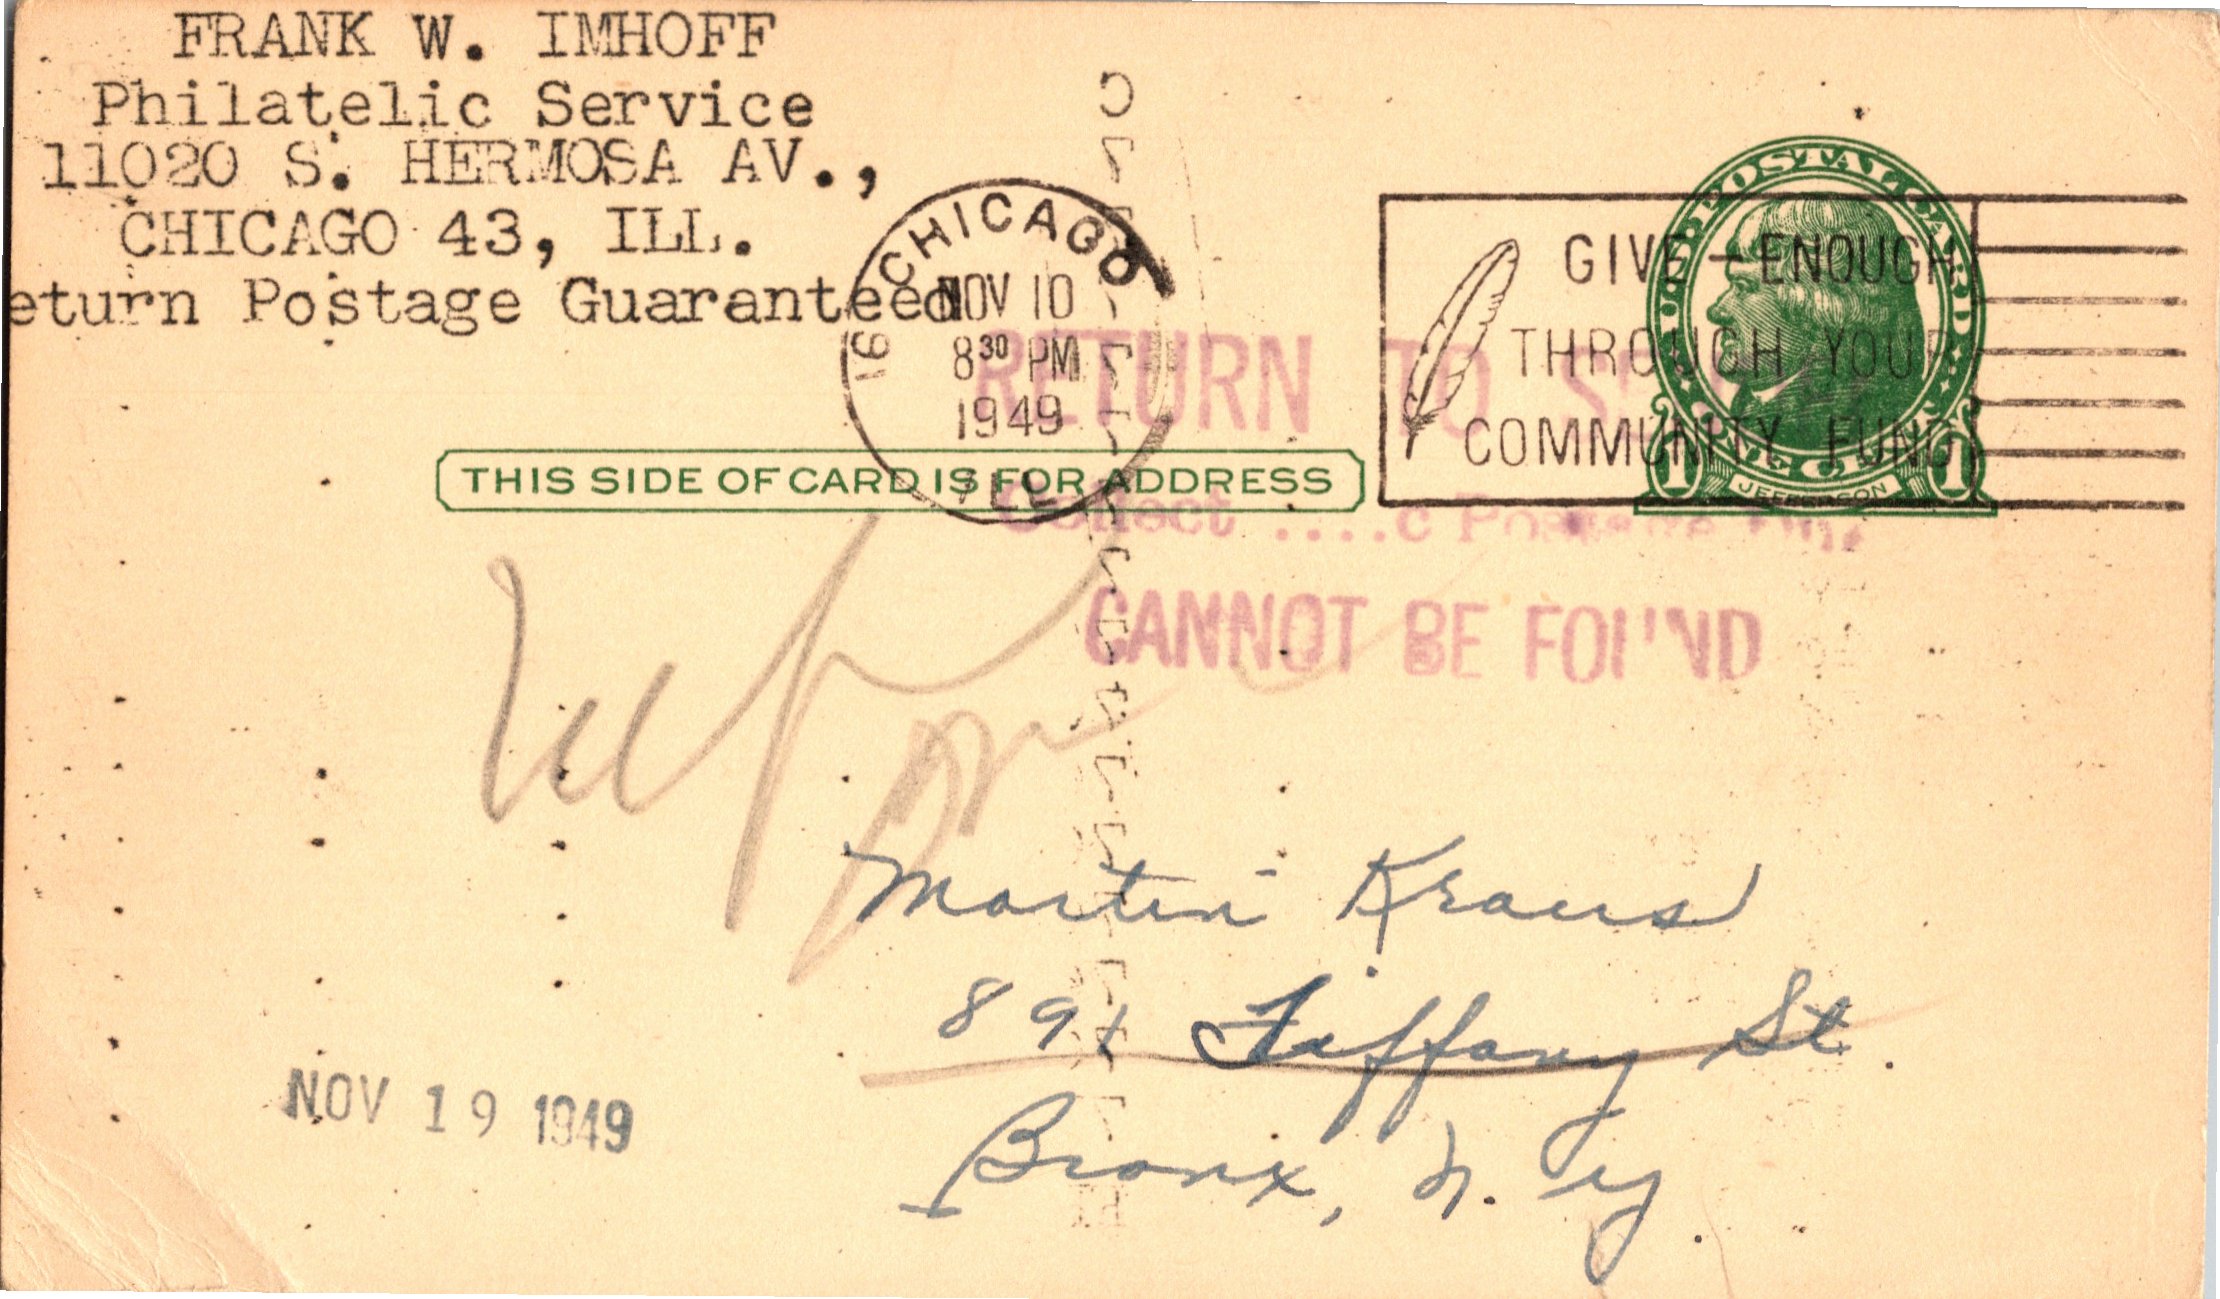 FRANK W. IMHOFF
Philatelic Service
11020 S. HERMOSA AV.,
CHICAGO 43, ILL.
eturn Postage Guaranteed
CHICAGO
16
NOV 10
8 30 PM
1949
ILL
GIVE - ENOUGH
THROUGH YOUR
COMMUNITY FUND
U.S. POSTAL CARD
ONE CENT
1 JEFFERSON 1
THIS SIDE OF CARD IS FOR ADDRESS
RETURN TO
Collect ....c Postage Due
CANNOT BE FOUND
Martin Kraus
891 Tiffany St.
Bronx, N. Y.
NOV 19 1949